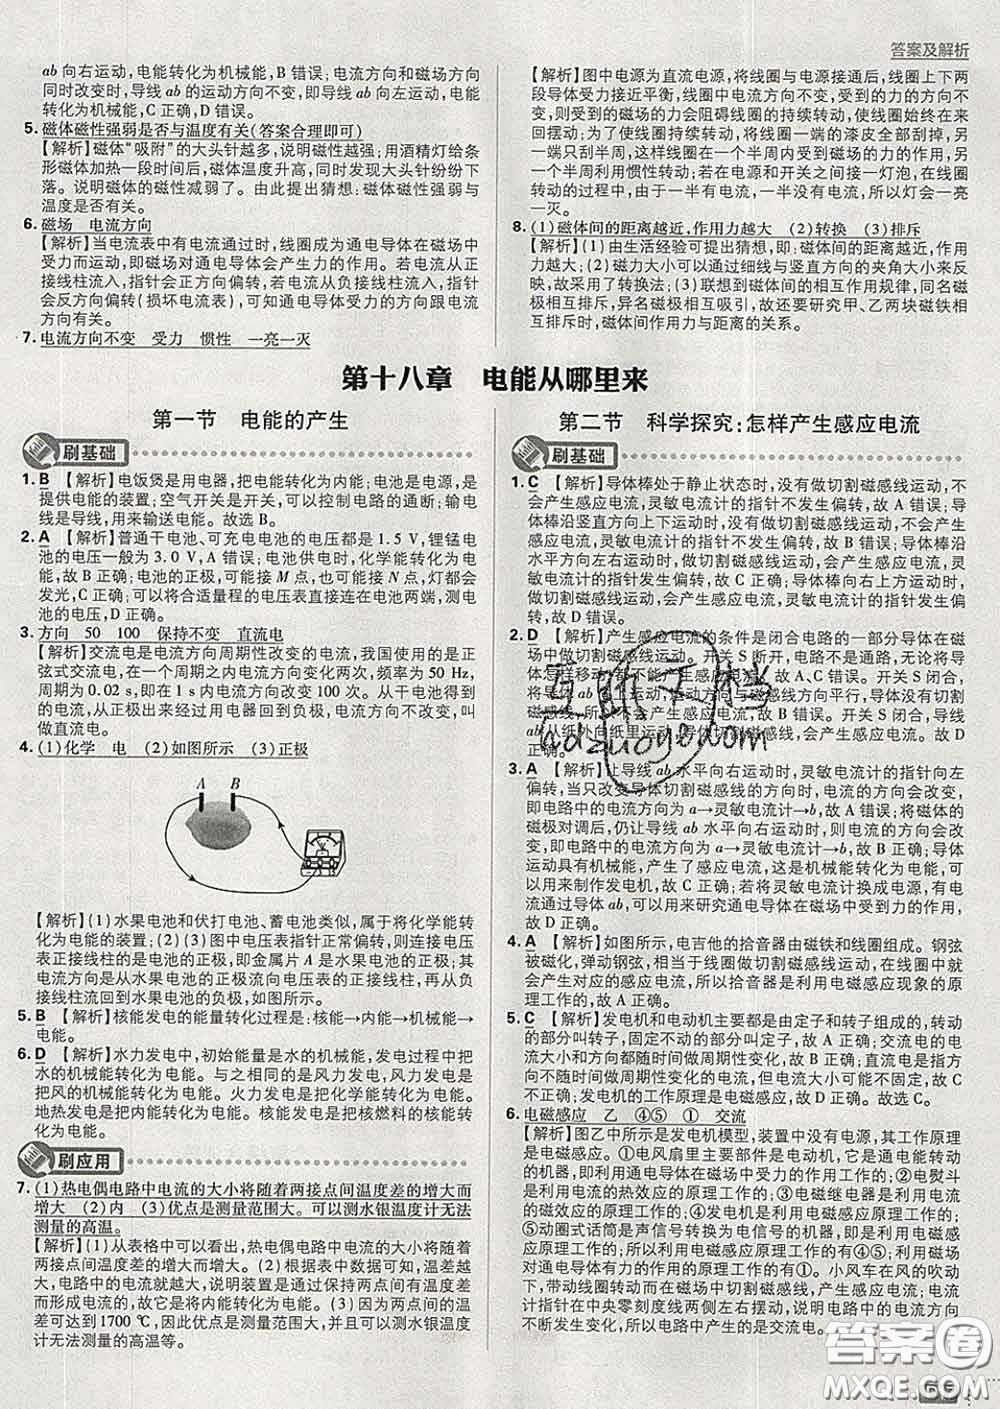 答案及解析
ab向右运动，电能转化为机械能，B错误；电流方向和磁场方向
同时改变时，导线ab的运动方向不变，即导线ab向左运动，电能
转化为机械能，C正确，D错误。
5. 磁体磁性强弱是否与温度有关（答案合理即可）
【解析】磁体“吸附”的大头针越多，说明磁性越强；用酒精灯给
条形磁体加热一段时间后，磁体温度升高，同时发现大头针纷纷下
落。说明磁体的磁性减弱了。由此提出猜想：磁体磁性强弱与
温度是否有关。
6. 磁场　电流方向
【解析】当电流表中有电流通过时，线圈成为通电导体在磁场中
受力而运动，即磁场对通电导体会产生力的作用。若电流从正
接线柱流入，指针会正方向偏转，若电流从负接线柱流入，指针
会反方向偏转（损坏电流表），可知通电导体受力的方向跟电流
方向有关。
7. 电流方向不变　受力　惯性　一亮一灭
【解析】图中电源为直流电源，将线圈与电源接通后，线圈上下两
段导体受力接近平衡，线圈中电流方向不变，受到的力的方向不
变，则受到的磁场的力会阻碍线圈的持续转动，使线圈始终在来
回摆动；为了实现线圈的持续转动，将线圈一端的漆皮全部刮掉，
另一端只刮半周，这样线圈在一个半周内受到磁场的力的作用，
另一个半周利用惯性转动；若在电源和开关之间接一灯泡，在线圈
转动的过程中，由于一半有电流，一半没有电流，所以灯会一亮
一灭。
8. (1)磁体间的距离越近，作用力越大　(2)转换　(3)排斥
【解析】(1)由生活经验可提出猜想，即：磁体间的距离越近，作用
力越大；(2)磁力大小可以通过细线与竖直方向的夹角大小来反
映，故采用了转换法；(3)联想到磁体间的相互作用规律，同名磁
极相互排斥，异名磁极相互吸引，故还要研究甲、乙两块磁铁相
互排斥时，磁体间作用力与距离的关系。
第十八章　电能从哪里来
第一节　电能的产生
刷基础
1. B　【解析】电饭煲是用电器，把电能转化为内能；电池是电源，是
提供电能的装置；空气开关是开关，可以控制电路的通断；输电
线是导线，用来输送电能。故选B。
2. A　【解析】普通干电池、可充电电池的电压都是1.5 V，锂锰电
池的电压一般为3.0 V，A错误；电池供电时，化学能转化为电
能，故B正确；电池的正极，可能接M点，也可能接N点，灯都会
发光，C正确；可以将合适量程的电压表直接连在电池两端，测电
池的电压，D正确。
3. 方向　50　100　保持不变　直流电
【解析】交流电是电流方向周期性改变的电流，我国使用的是正
弦式交流电，在一个周期之内电流方向变化两次，频率为50 Hz，
周期为0.02 s，即在1 s内电流方向改变100次。从干电池得到
的电流，从正极出来经过用电器回到负极，电流方向不改变，叫
做直流电。
4. (1)化学　电　(2)如图所示　(3)正极
A　B
V
【解析】(1)水果电池和伏打电池、蓄电池类似，属于将化学能转
化为电能的装置；(2)(3)图中电压表指针正常偏转，则连接电压
表正接线柱的是电池的正极，即金属片A是水果电池的正极；其
电流方向是从水果电池的正极流向电压表的正接线柱，再从负
接线柱流回到水果电池的负极，如图所示。
5. B　【解析】核能发电的能量转化过程是：核能→内能→机械能→
电能。
6. D　【解析】水力发电中，初始能量是水的机械能，发电过程中把
水的机械能转化为电能。与之相同的是风力发电，风力发电是
把风的机械能转化为电能。火力发电是把化学能转化为电能。
地热发电是把内能转化为电能。核能发电是将核燃料的核能转
化为电能。
刷应用
7. (1)热电偶电路中电流的大小将随着两接点间温度差的增大而
增大　(2)内　(3)优点是测量范围大。可以测水银温度计无法
测量的高温。
【解析】(1)从表格中可以看出，热电偶电路中电流的大小将随着
两接点间温度差的增大而增大。(2)根据表中数据可知，温度差
越大，电路中的电流就越大，说明装置通过保持两点间有温度差
而形成电流的，故它是将内能转化为电能。(3)因为两点间的温
差可达到1700 ℃，因此优点是测量范围大，并且可以测水银温度
计无法测量的高温等。
第二节　科学探究：怎样产生感应电流
刷基础
1. C　【解析】导体棒处于静止状态时，没有做切割磁感线运动，不
会产生感应电流，灵敏电流计的指针不发生偏转，故A错误；导
体棒沿竖直方向上下运动时，没有做切割磁感线运动，不会产生
感应电流，灵敏电流计的指针不发生偏转，故B错误；导体棒沿
水平方向左右运动时，做切割磁感线运动，会产生感应电流，灵敏
电流计的指针发生偏转，故C正确；导体棒向右上方运动时，
做切割磁感线运动，会产生感应电流，灵敏电流计的指针发生偏
转，故D错误。
2. D　【解析】产生感应电流的条件是闭合电路的一部分导体在磁
场中做切割磁感线运动。开关S断开，电路不是通路，无论将导体
怎样移动，都不能产生感应电流，故A、C错误。开关S闭合，导
体向上运动，运动方向与磁感线方向平行，导体没有切割
磁感线，所以不能产生感应电流，故B错误。开关S闭合，导体
从纸外向纸里运动，做切割磁感线运动，有感应电流产生，故D
正确。
3. A　【解析】让导线ab水平向右运动时，灵敏电流计的指针向左
偏转，当只改变导体切割磁感线的方向时，电流的方向会改变，
即电路中的电流方向为a→灵敏电流计→b，故A错误；将磁体的
磁极对调后，仍让导线ab水平向右运动时，则电流的方向会改
变，即电路中的电流方向为a→灵敏电流计→b，故B正确；导体
运动具有机械能，产生了感应电流，这是机械能转化为电能，可
以用来制作发电机，故C正确；若将灵敏电流计换成电源，有电
流通过导体ab，可以用来探究通电导体在磁场中受到力的作用，
故D正确。
4. A　【解析】如图所示，电吉他的拾音器由磁铁和线圈组成。钢弦
被磁化，弹动钢弦，相当于线圈做切割磁感线运动，在线圈中产
生变化的感应电流，所以拾音器是利用电磁感应现象的原
理工作的，故A正确。
5. C　【解析】发电机和电动机主要都是由定子和转子组成的，转动
的部分叫转子，固定不动的部分叫定子，故A正确；交流电的电流
大小和方向都随时间做周期性变化，故B正确；直流电是指方
向不随时间做周期性变化的电流，但大小可能不固定，故C错误；
大型交流发电机主要是线圈不动、磁极旋转来发电的，故D正确。
6. 电磁感应　乙　④⑤　①　交流
【解析】图乙中所示是发电机模型，装置中没有电源，其工作原理
是电磁感应。①电风扇里主要部件是电动机，它是通电能运动
的机器，即利用通电导体在磁场中受力的作用而工作；②电熨斗
是利用电流的热效应的原理工作的；③电磁继电器是利用电流
的磁效应的原理工作的；④发电机是利用电磁感应的原理工作的；
⑤动圈式话筒是声信号转换为电信号的机器，即是应用电磁感应
的原理制成的；所以利用电磁感应的原理工作的有④⑤；利用磁场对
通电导体有力的作用的原理工作的有①。小风车在风的吹动
下，带动线圈转动而在磁场中切割磁感线，产生感应电流；电流
计指针在中央零刻度线两侧左右摆动，说明电路中的电流方向
不断发生变化，所以电路中产生的是交流电。
答案圈
MXQE.COM